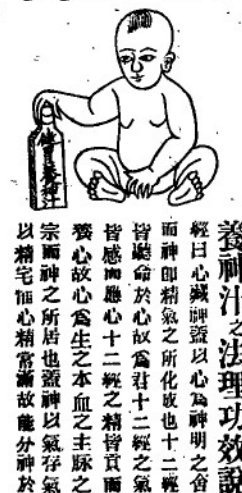 養神汁之法理功效說
經曰心藏神蓋以心爲神明之舍
而神卽精氣之所化成也十二經
皆聽命於心故爲君十二經之氣
皆感而應心十二經之精皆貢而
養心故心爲生之本血之主脉之
宗而神之所居也蓋神以氣存氣
以精宅恒心精常滿故能分神於
養神汁